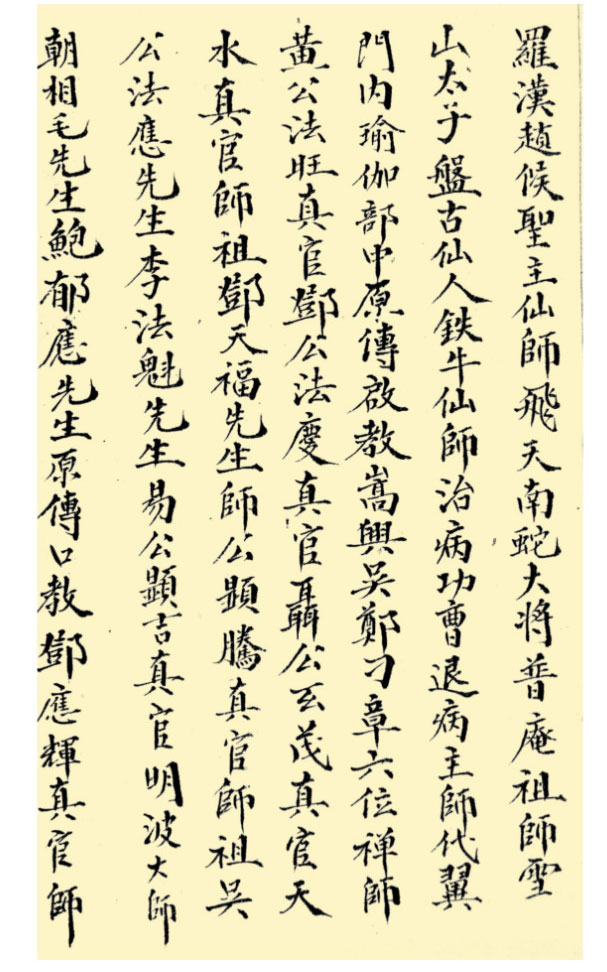 羅漢趙候聖主仙師飛天南蛇大將普庵祖師雪
山太子盤古仙人鉄牛仙師治病功曹退病主師代翼
門内瑜伽部中原傳啟教嵩興吴鄭刁章六位禅師
黄公法旺真官鄧公法慶真官聶公玄茂真官天
水真官師祖鄧天福先生師公顯騰真官師祖吴
公法應先生李法魁先生易公顯吉真官明波大師
朝相毛先生鮑郁應先生原傳口教鄧應輝真官師